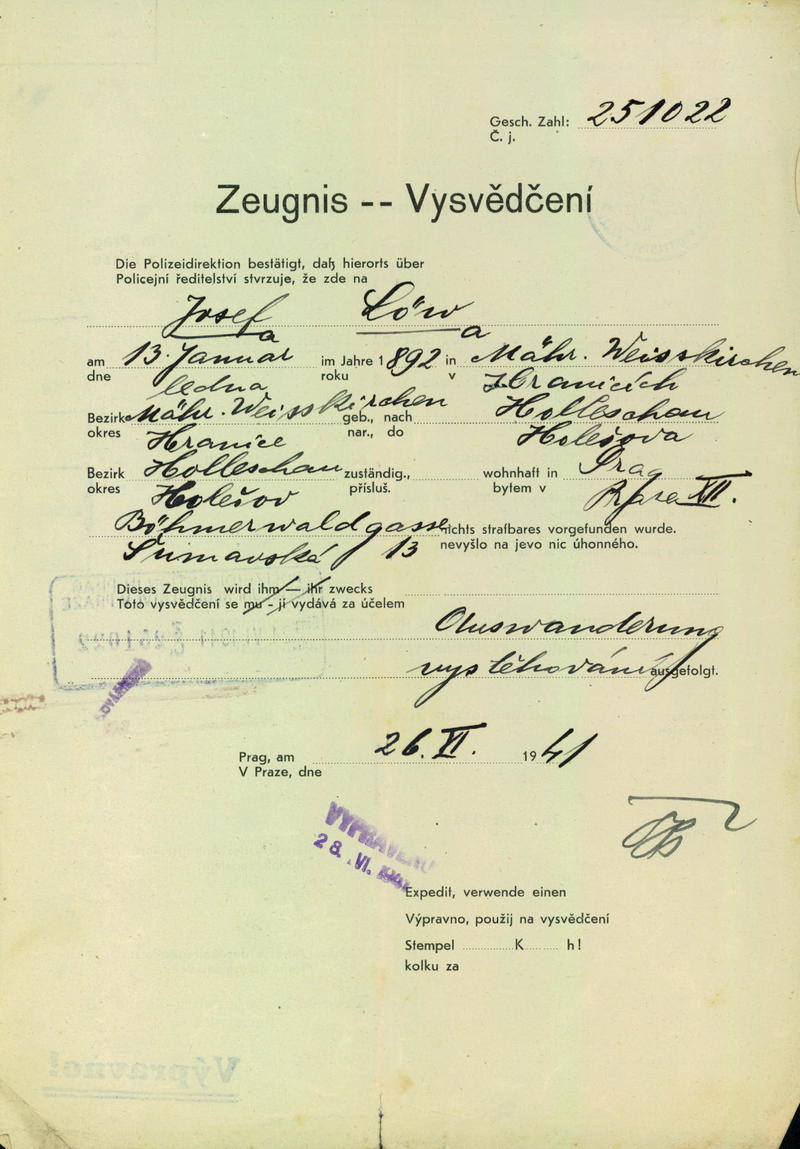 Gesch. Zahl: 251022
Č. j.
Zeugnis -- Vysvědčení
Die Polizeidirektion bestätigt, daß hierorts über
Policejní ředitelství stvrzuje, že zde na
Josefa Löwa
am 13. Januar im Jahre 1892 in Mähr. Weisskirchen
dne ledna roku v Hranicích
Bezirke Mähr. Weisskirchen geb., nach Holleschau
okres Hranice nar., do Holešova
Bezirk Holleschau zuständig., wohnhaft in Prag
okres Holešov přísluš. bytem v Praze XII.
Böhmerwaldgasse nichts strafbares vorgefunden wurde.
Šumavská 13 nevyšlo na jevo nic úhonného.
Dieses Zeugnis wird ihm — ihr zwecks
Toto vysvědčení se mu - jí vydává za účelem
Auswanderung
vystěhování ausgefolgt.
Prag, am 26. VI. 1941
V Praze, dne
VYPRAVENO
28. VI. 1941
Expedit, verwende einen
Výpravno, použij na vysvědčení
Stempel K h!
kolku za
Výpravno!